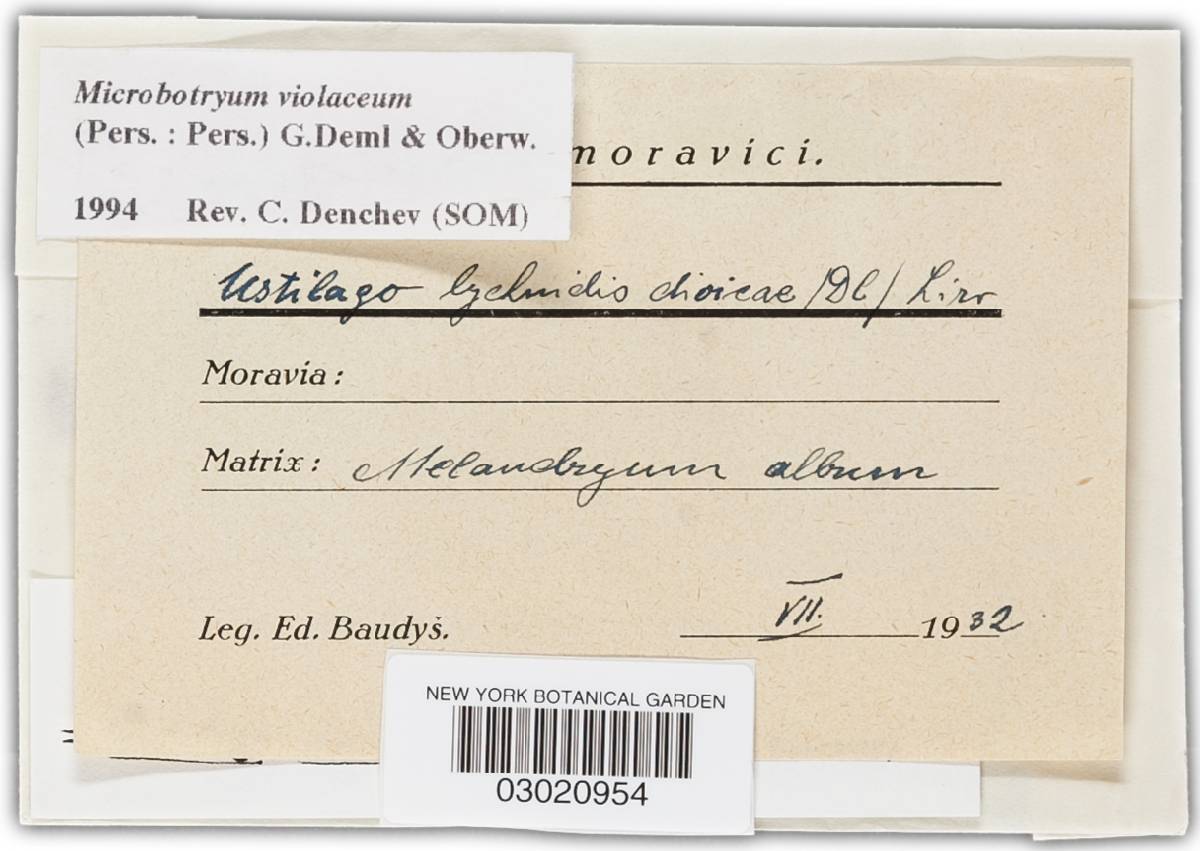 Microbotryum violaceum
(Pers. : Pers.) G.Deml & Oberw.
1994 Rev. C. Denchev (SOM)
moravici.
Ustilago lychnidis dioicae /DC/ Liro
Moravia :
Matrix : Melandryum album
Leg. Ed. Baudyš. VII. 1932
NEW YORK BOTANICAL GARDEN
03020954